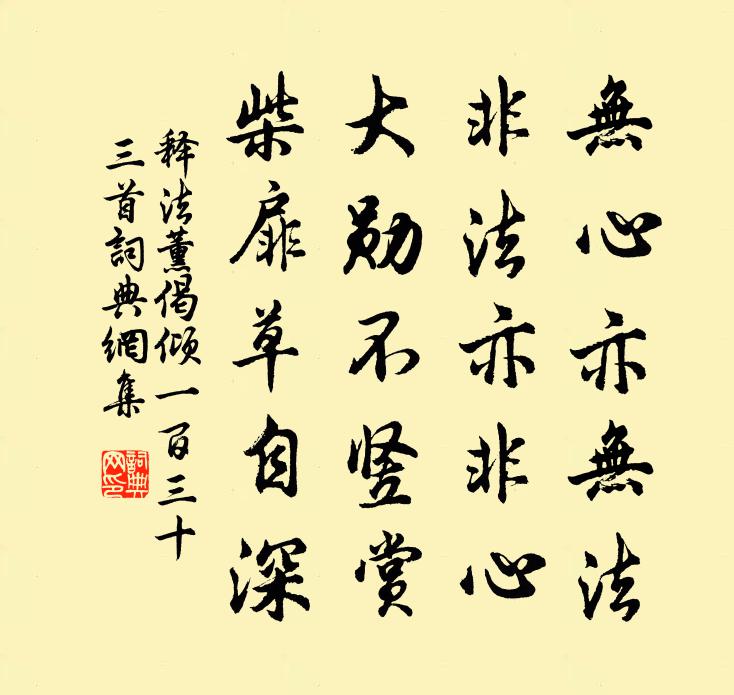 無心亦無法
非法亦非心
大勛不豎賞
柴扉草自深
释法薰偈傾一百三十
三首詞典網集
詞典網印